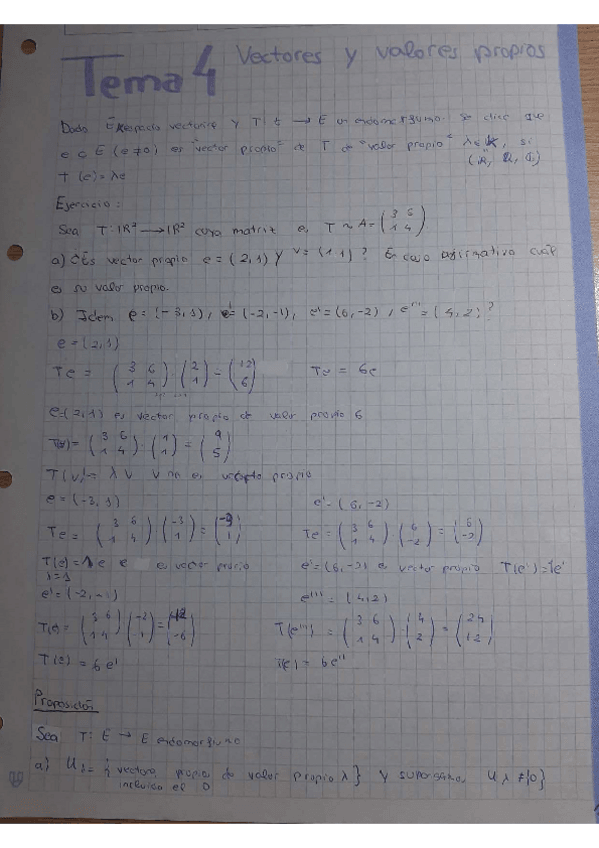 Tema 4 Vectores y valores propios
Dado E espacio vectorial y T: E → E un endomorfismo. Se dice que
e ∈ E (e ≠ 0) es "vector propio" de T de "valor propio" λ ∈ K, si
T(e) = λe (R, Q, C)
Ejercicio:
Sea T: IR² → IR² cuya matriz es T ~ A = (3 6 / 1 4)
a) ¿Es vector propio e = (2,1) y v = (1,1)? En caso afirmativo cuál
es su valor propio.
b) Idem e = (-3,1), e' = (-2,-1), e'' = (6,-2), e''' = (4,2)?
e = (2,1)
Te = (3 6 / 1 4) · (2 / 1) = (12 / 6) Te = 6e
e = (2,1) es vector propio de valor propio 6
T(v) = (3 6 / 1 4) · (1 / 1) = (9 / 5)
T(v) = λv v no es propio
e = (-3,1) e' = (6,-2)
Te = (3 6 / 1 4) · (-3 / 1) = (-3 / 1) Te = (3 6 / 1 4) · (6 / -2) = (6 / -2)
T(e) = 1e e es vector propio e' = (6,-2) es vector propio T(e') = 1e'
λ = 1
e' = (-2,-1) e''' = (4,2)
T(e) = (3 6 / 1 4) (-2 / -1) = (-12 / -6) T(e''') = (3 6 / 1 4) · (4 / 2) = (24 / 12)
T(e) = 6e' T(e) = 6e'''
Proposición
Sea T: E → E endomorfismo
a) Uλ = { vectores propios de valor propio λ } y supongamos Uλ ≠ {0}
incluido el 0